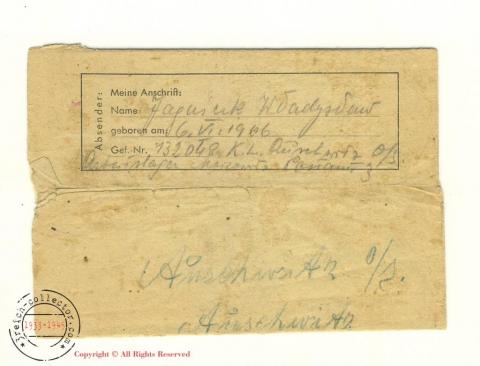 Absender:
Meine Anschrift:
Name: Władysław
geboren am: 6. VI. 1906
Gef. Nr. 132048 K.L. Auschwitz O/S.
Arbeitslager
Auschwitz O/S.
Auschwitz
3reich-collector.com
1933-1945
Copyright © All Rights Reserved